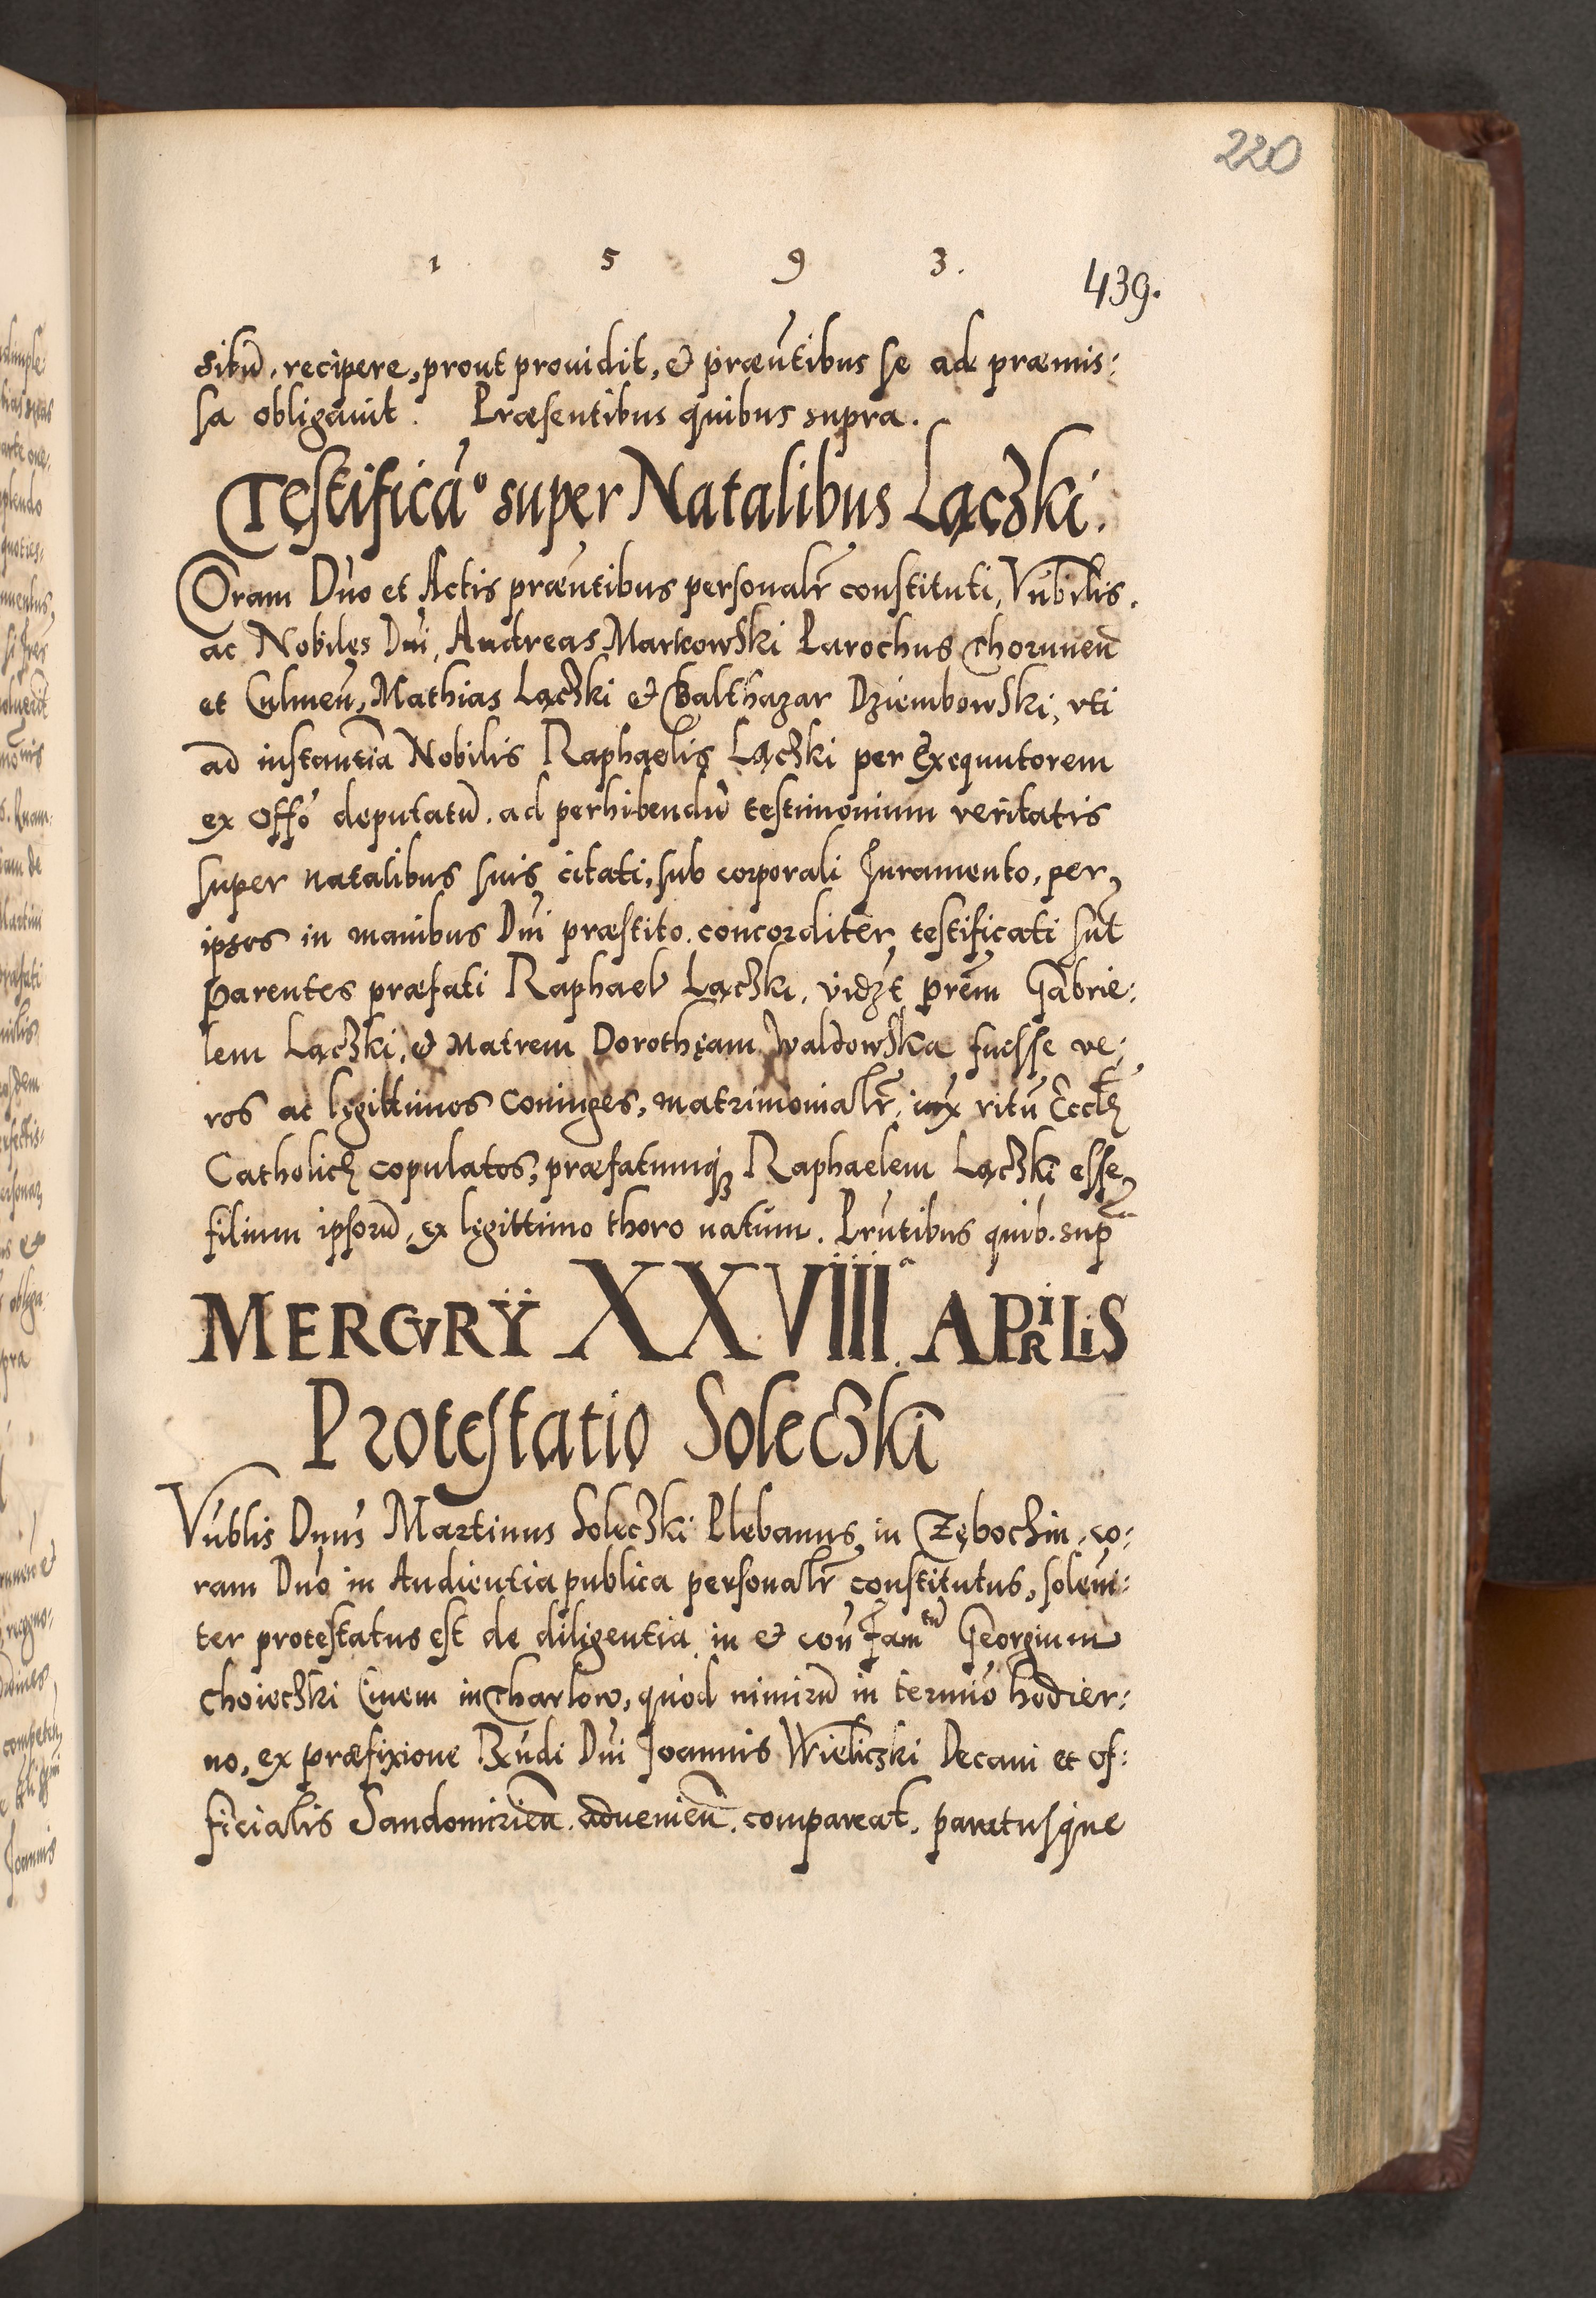 220
1 5 9 3.
439.
sibū. recipere, prout prouidit, & præn̄tibus se ad præmis:
sa obligauit. Præsentibus quibus supra.
Testificaō super Natalibus Lączki.
Coram Dn̄o et Actis præn̄tibus personalr̄ constituti, Vn̄bilis.
ac Nobiles Dn̄i, Andreas Markowski Parochus Thorunen̄
et Culmen̄, Mathias Lączki & Balthazar Dziembowski, vti
ad instantiā Nobilis Raphaelis Lączki per Exequutorem
ex Offō deputatū. ad perhibendū testimonium veritatis
super natalibus suis citati, sub corporali Iuramento, per
ipsos in manibus Dn̄i præstito. concorditer testificati sūt
Parentes præfati Raphael Lączki, vidz̄t prēm Gabrie:
lem Lączki, & Matrem Dorothęam Waldowska fuesse ve:
ros ac legittimos Coniuges, matrimonialr̄, iux ritū Eccłę
Catholicę copulatos, præfatumqꝫ Raphaelem Lączki esse
filium ipsorū, ex legittimo thoro natum. Prn̄tibus quib. supᵃ
MERCVRŸ XXVIIIIᵃ APRILIS
Protestatio Soleczki
Vn̄blis Dn̄us Martinus Soleczki Plebanus in Czębochin, co:
ram Dn̄o in Audientia publica personalr̄ constitutus, solem̄:
ter protestatus est de diligentia in & con̄ Famᵗū Georgium
Choieczki Ciuem in Charlow, quod nimirū in termīo hodier:
no, ex præfixione Rn̄di Dn̄i Joannis Wieliczki Decani et Of:
ficialis Sandomirien̄. aduenien̄. compareat. paratusque